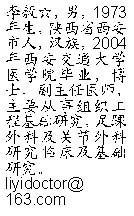 李毅，男，1973
年生，陕西省西安
市人，汉族，2004
年西安交通大学
医学院毕业，博
士，副主任医师，
主要从事组织工
程基础研究，足踝
外科及关节外科
研究临床及基础
研究。
liyidoctor@
163.com